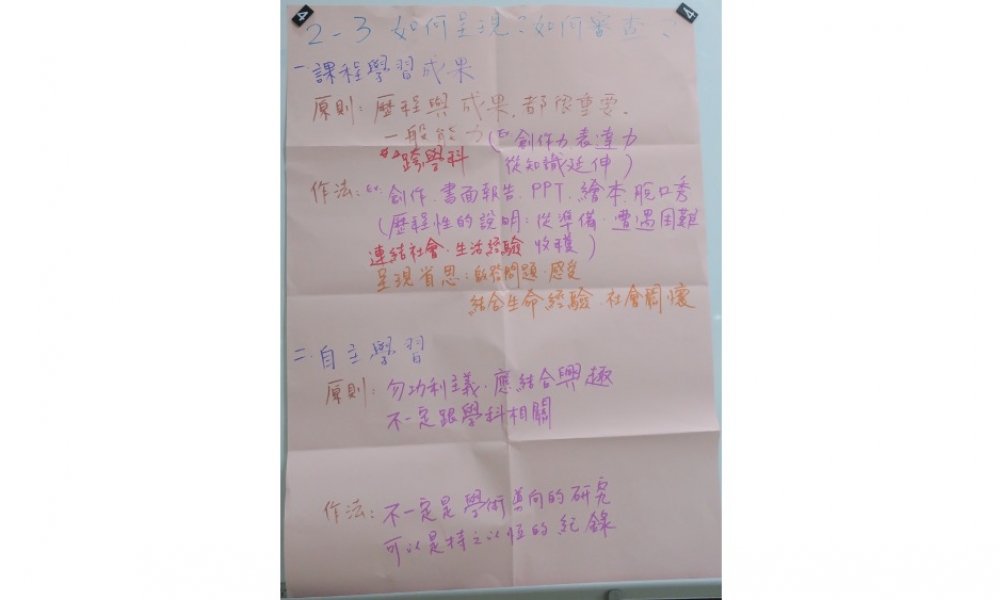 4
4
2-3 如何呈現?如何審查?
一.課程學習成果
原則:歷程與成果.都很重要.
一般能力(ex創作力表達力
跨學科 從知識延伸)
作法:ex.創作.書面報告.PPT.繪本.脫口秀
(歷程性的說明:從準備.遭遇困難
連結社會.生活經驗 收穫)
呈現省思:啟發問題.感受
結合生命經驗.社會關懷
二.自主學習
原則:勿功利主義.應結合興趣
不一定跟學科相關
作法:不一定是學術導向的研究
可以是持之以恆的紀錄